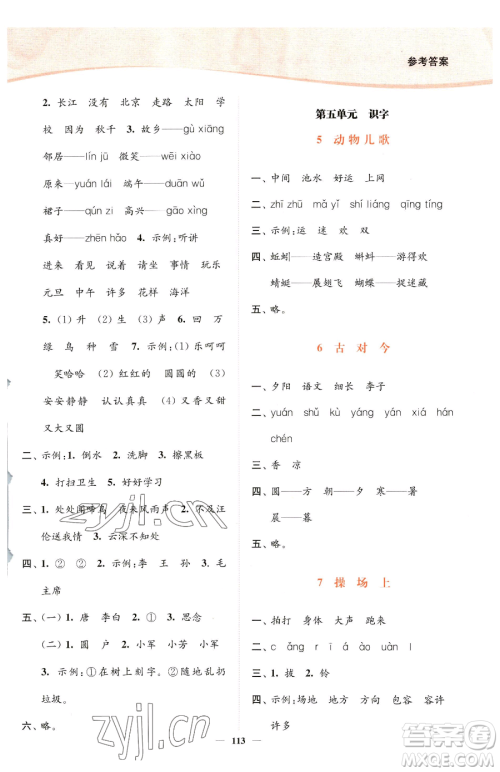 参考答案
2. 长江 没有 北京 走路 太阳 学
校 因为 秋千 3. 故乡——gù xiāng
邻居——lín jū 微笑——wēi xiào
原来——yuán lái 端午——duān wǔ
裙子——qún zi 高兴——gāo xìng
真好——zhēn hǎo 4. 示例:听讲
进来 看见 说话 请坐 事情 玩乐
元旦 中午 许多 花样 海洋
5. (1)升 (2)生 (3)声 6. 回 万
绿 鸟 种 雪 7. 示例:(1)乐呵呵
笑哈哈 (2)高高的 圆圆的 (3)安
安静静 认认真真 (4)又香又甜
又大又圆
二、示例:1. 倒水 2. 洗脚 3. 擦黑板
4. 打扫卫生 5. 好好学习
三、1. 处处闻啼鸟 夜来风雨声 2. 不及汪
伦送我情 3. 云深不知处
四、1. ② ② 2. 示例:李 王 孙 3. 毛
主席
五、(一) 1. 唐 李白 2. ① 3. 思念
(二) 1. 圆 户 2. 小军 小芳 小军
小芳 3. 示例:①在树上刻字。②随地乱扔
垃圾。
六、略。
第五单元 识字
5 动物儿歌
一、中间 池水 好运 上网
二、zhī zhū mǎ yǐ shí liáng qīng tíng
三、示例:运 迷 欢 双
四、蚯蚓——造宫殿 蝌蚪——游得欢
蜻蜓——展翅飞 蝴蝶——捉迷藏
五、略。
6 古对今
一、夕阳 语文 细长 李子
二、yuán shǔ kù yáng yán xiá hán
chén
三、香 凉
四、圆——方 朝——夕 寒——暑
晨——暮
五、略。
7 操场上
一、拍打 身体 大声 跑来
二、c ǎng r ī á ān ào ò
三、1. 拔 2. 铃
四、示例:场地 地方 内容 包容 容许
许多
113
zyjl.cn
zyjl.cn